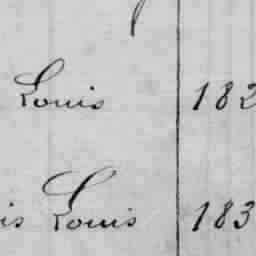 Louis 182
is Louis 183